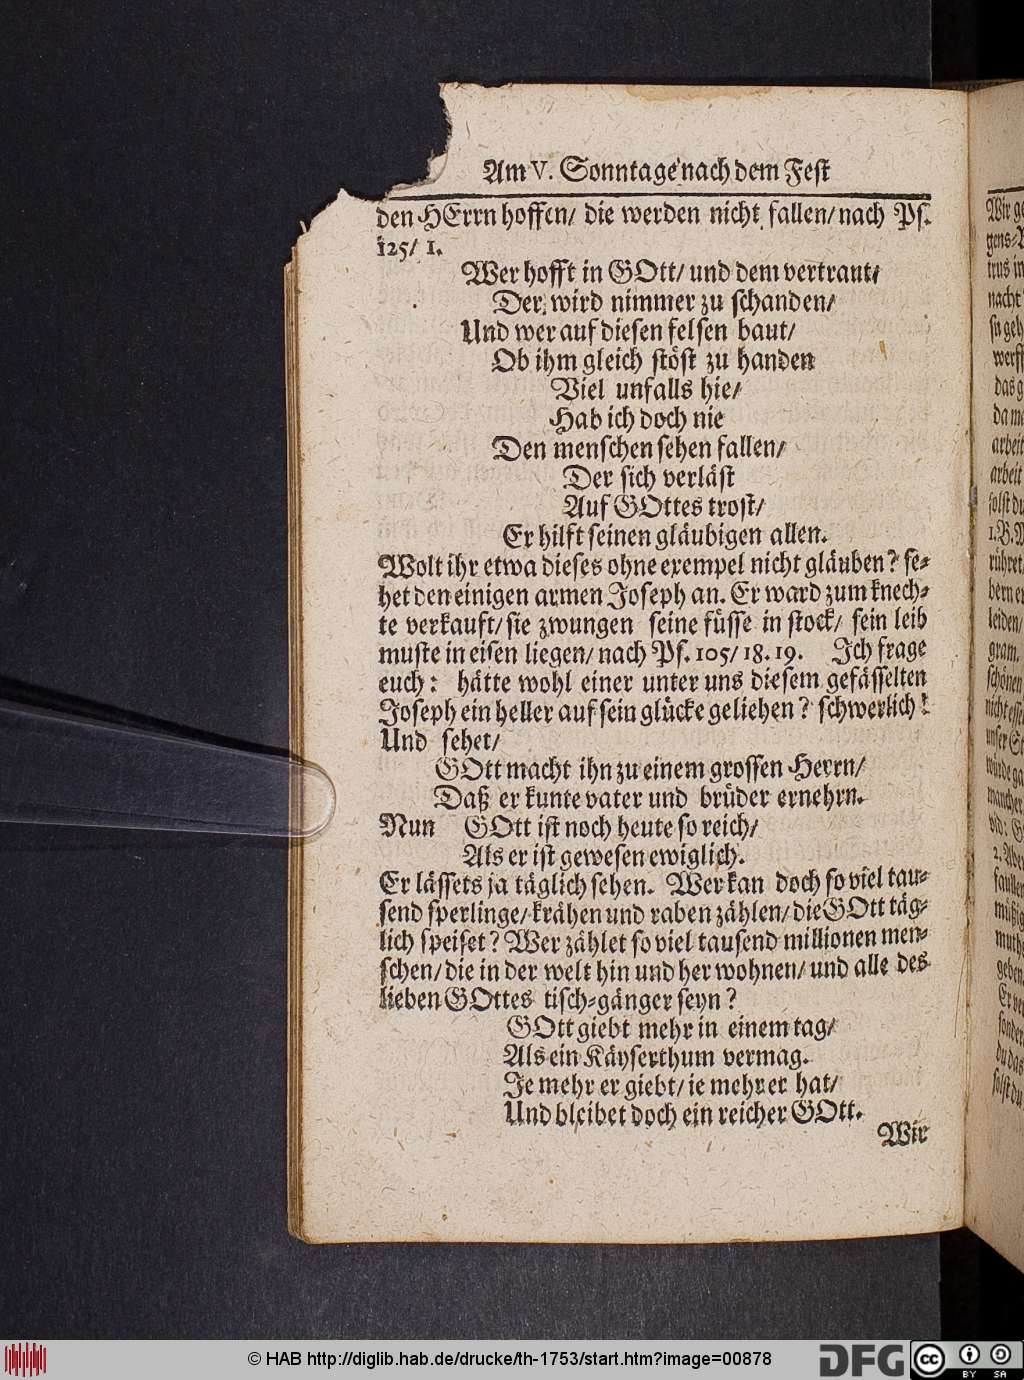 Am V. Sonntage nach dem Fest
den HErrn hoffen/ die werden nicht fallen/ nach Ps.
125/ 1.
Wer hofft in GOtt/ und dem vertraut/
Der wird nimmer zu schanden/
Und wer auf diesen felsen baut/
Ob ihm gleich stöst zu handen
Viel unfalls hie/
Hab ich doch nie
Den menschen sehen fallen/
Der sich verläst
Auf GOttes trost/
Er hilft seinen gläubigen allen.
Wolt ihr etwa dieses ohne exempel nicht gläuben? se-
het den einigen armen Joseph an. Er ward zum knech-
te verkauft/ sie zwungen seine füsse in stock/ sein leib
muste in eisen liegen/ nach Ps. 105/ 18. 19. Ich frage
euch: hätte wohl einer unter uns diesem gefässelten
Joseph ein heller auf sein glücke geliehen? schwerlich!
Und sehet/
GOtt macht ihn zu einem grossen Herrn/
Daß er kunte vater und brüder ernehrn.
Nun GOtt ist noch heute so reich/
Als er ist gewesen ewiglich.
Er lässets ja täglich sehen. Wer kan doch so viel tau-
send sperlinge/ krähen und raben zählen/ die GOtt täg-
lich speiset? Wer zählet so viel tausend millionen men-
schen/ die in der welt hin und her wohnen/ und alle des
lieben GOttes tisch-gänger seyn?
GOtt giebt mehr in einem tag/
Als ein Käyserthum vermag.
Je mehr er giebt/ ie mehr er hat/
Und bleibet doch ein reicher GOtt.
Wir
© HAB http://diglib.hab.de/drucke/th-1753/start.htm?image=00878
DFG
cc
BY SA